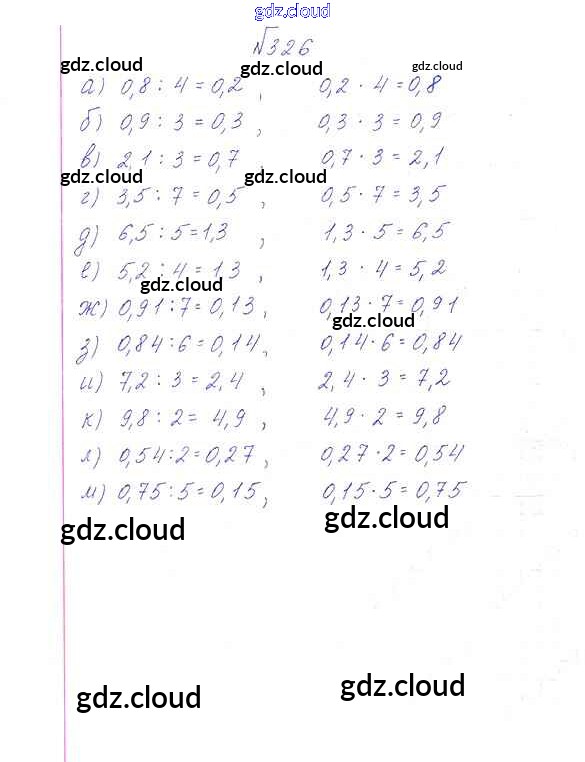 gdz.cloud
№326
gdz.cloud gdz.cloud
а) 0,8 : 4 = 0,2 , 0,2 · 4 = 0,8
б) 0,9 : 3 = 0,3 , 0,3 · 3 = 0,9
в) 2,1 : 3 = 0,7 , 0,7 · 3 = 2,1
gdz.cloud gdz.cloud
г) 3,5 : 7 = 0,5 , 0,5 · 7 = 3,5
д) 6,5 : 5 = 1,3 , 1,3 · 5 = 6,5
е) 5,2 : 4 = 1,3 , 1,3 · 4 = 5,2
gdz.cloud
ж) 0,91 : 7 = 0,13 , 0,13 · 7 = 0,91
gdz.cloud
з) 0,84 : 6 = 0,14 , 0,14 · 6 = 0,84
и) 7,2 : 3 = 2,4 , 2,4 · 3 = 7,2
к) 9,8 : 2 = 4,9 , 4,9 · 2 = 9,8
л) 0,54 : 2 = 0,27 , 0,27 · 2 = 0,54
м) 0,75 : 5 = 0,15 , 0,15 · 5 = 0,75
gdz.cloud gdz.cloud
gdz.cloud gdz.cloud